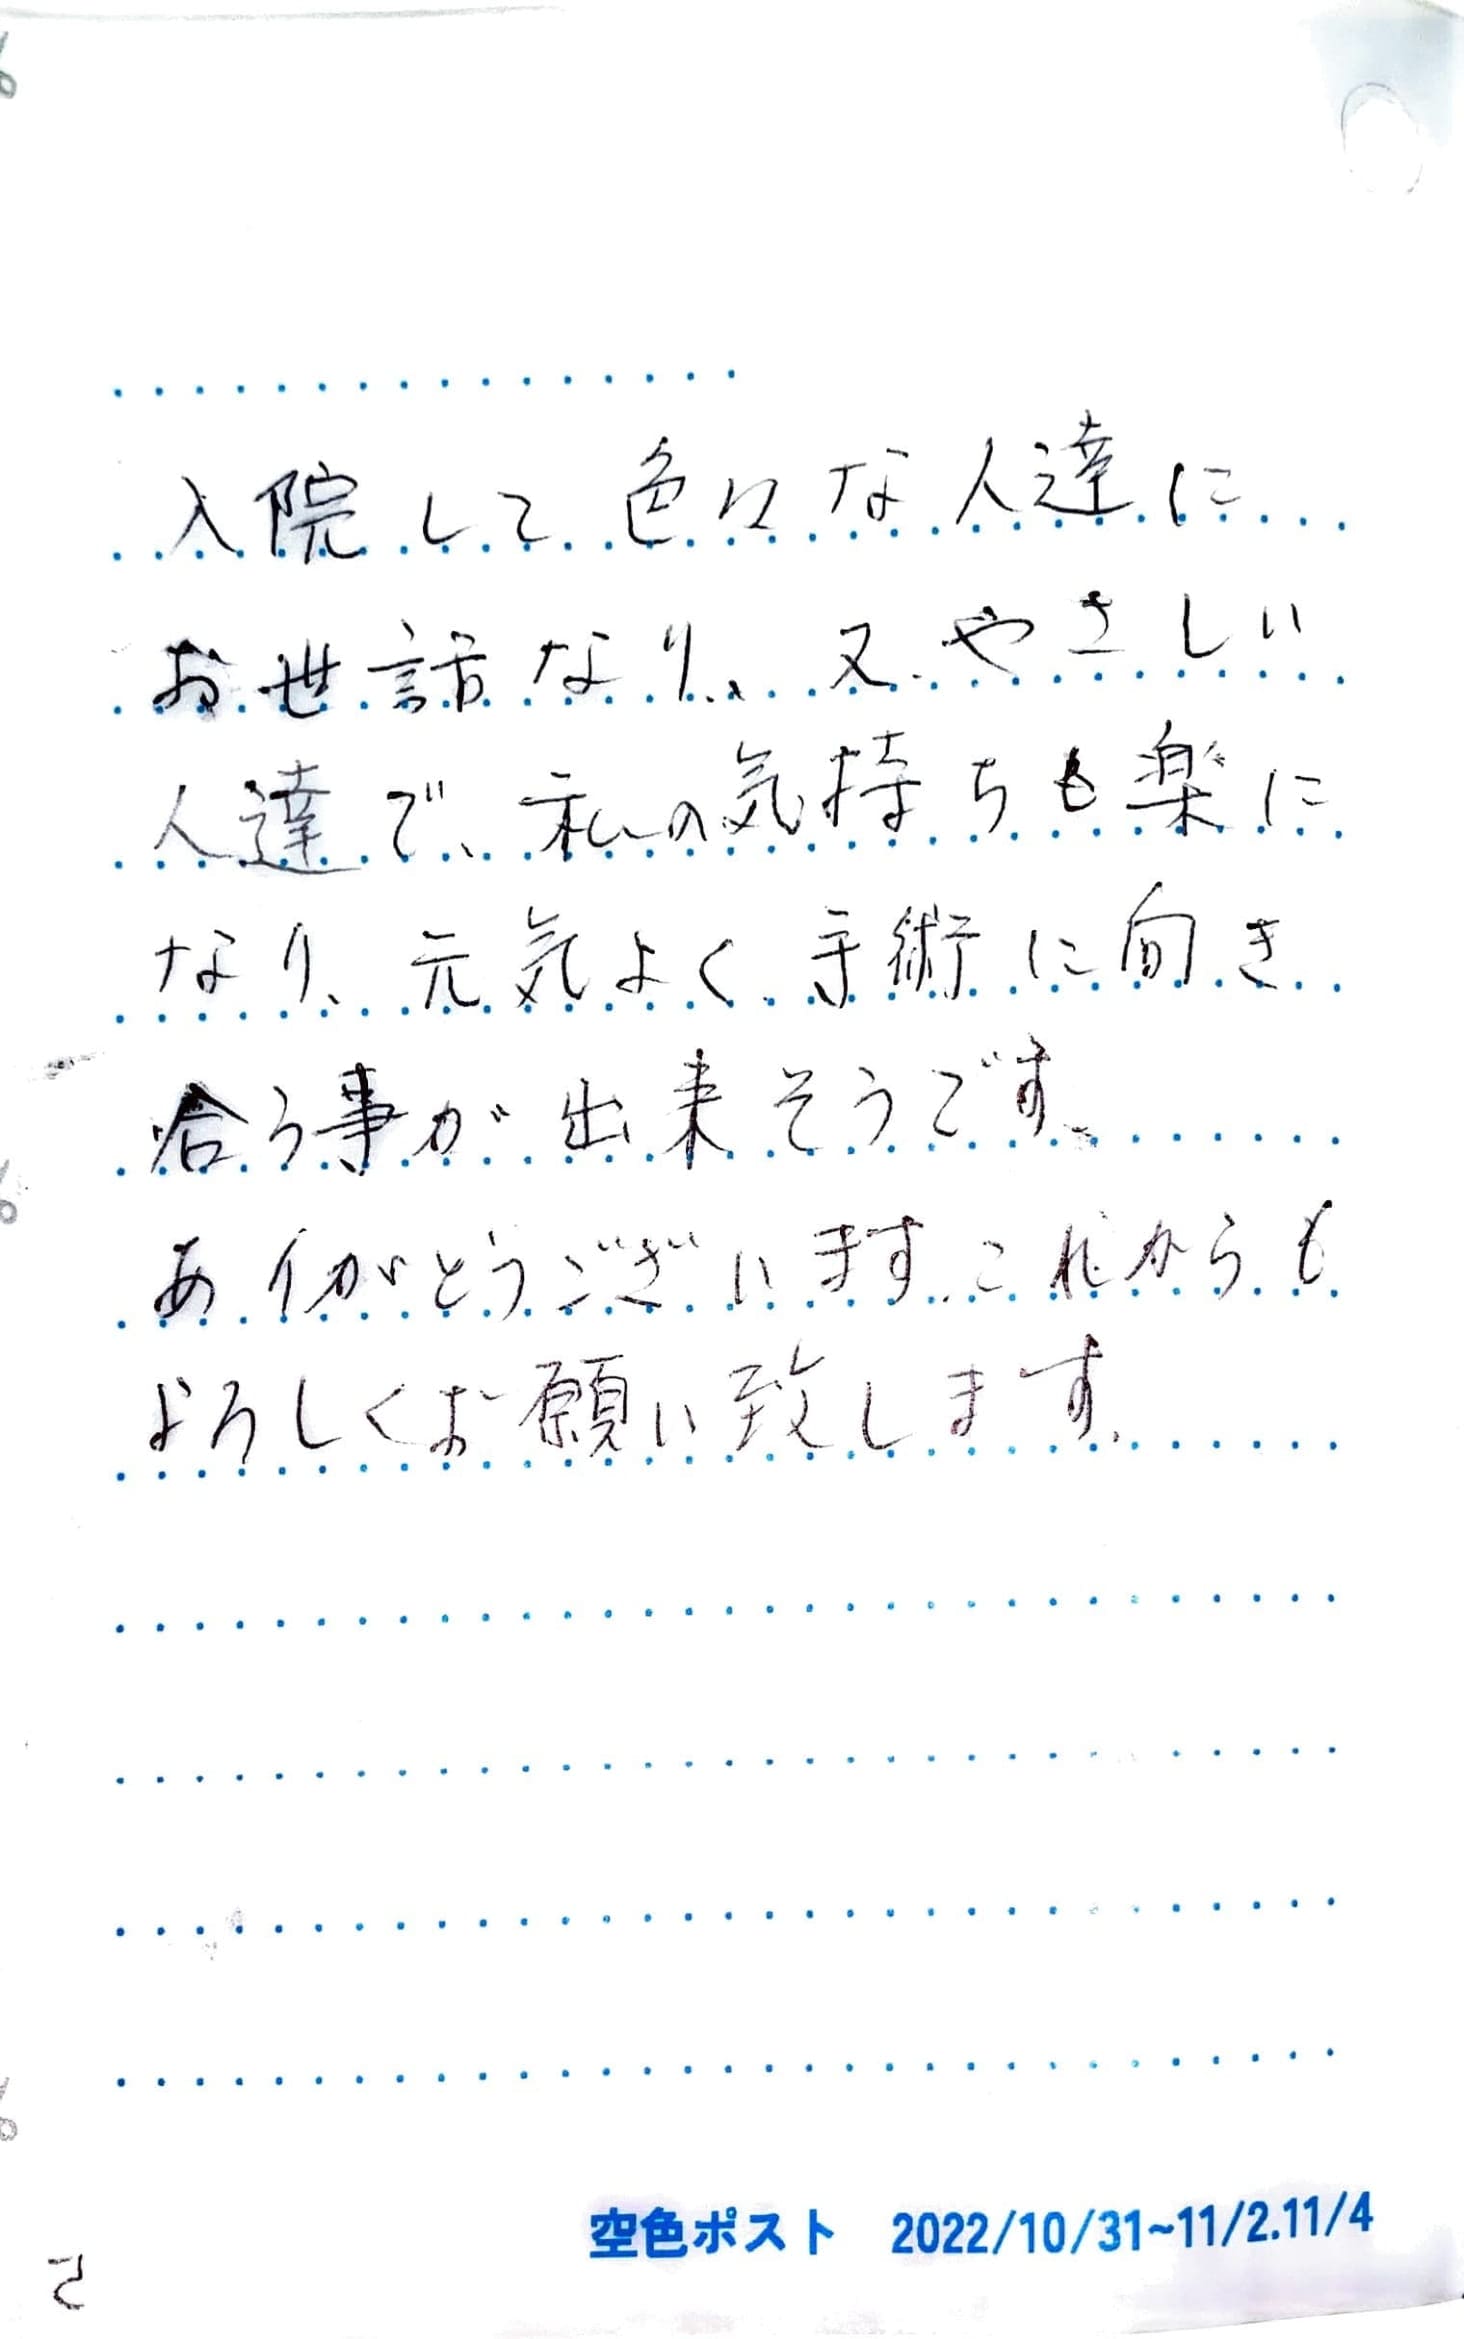 入院して色々な人達に
お世話なり、又やさしい
人達で、私の気持ちも楽に
なり、元気よく手術に向き
合う事が出来そうです。
ありがとうございます。これからも
よろしくお願い致します。
空色ポスト 2022/10/31~11/2.11/4